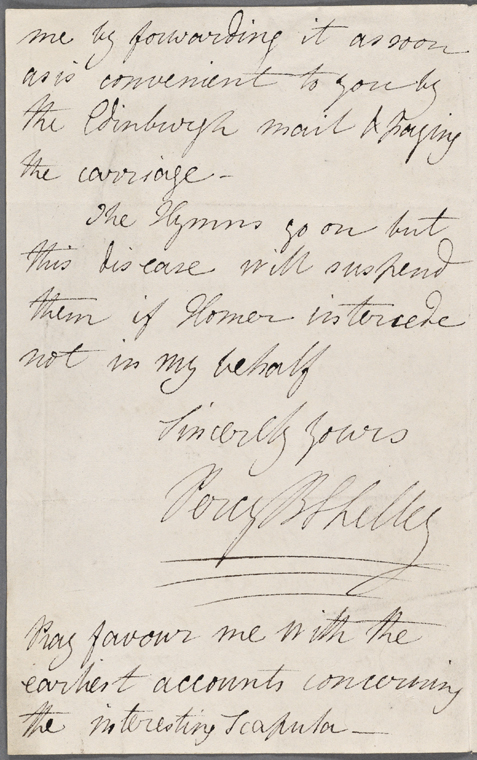 me by forwarding it as soon
as is convenient to you by
the Edinburgh mail & paying
the carriage –
The Hymns go on but
this disease will suspend
them if Homer intercede
not in my behalf
Sincerely yours
Percy B Shelley
Pray favour me with the
earliest accounts concerning
the interesting Scapula –